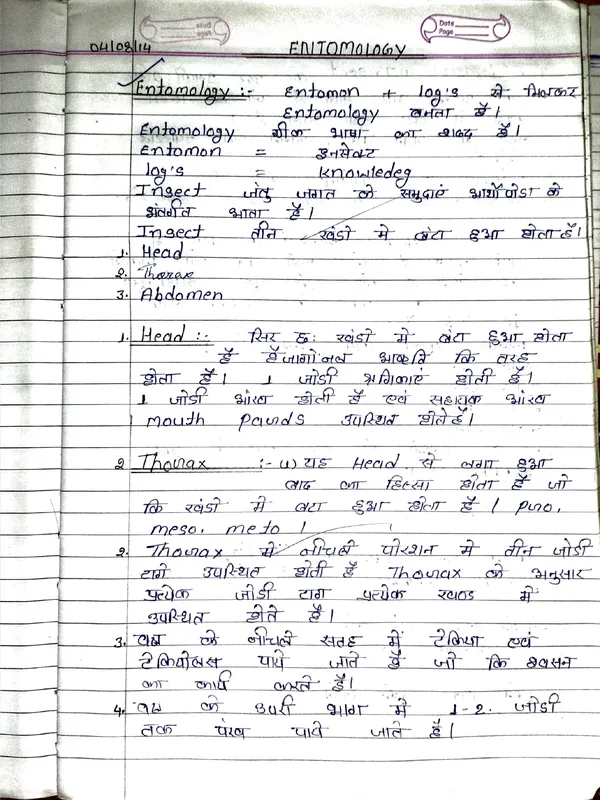 Date
Page
04/08/14
ENTOMOLOGY
Entomology :- Entomon + log's से मिलकर
Entomology बनता है।
Entomology ग्रीक भाषा का शब्द है।
Entomon = इनसेक्ट
log's = Knowledeg
Insect जंतु जगत के समुदाएं आर्थोपोडा के
अंतर्गत आता है।
Insect तीन खंडो मे बंटा हुआ होता है।
1. Head
2. Thorax
3. Abdomen
1. Head :- सिर छः खंडो मे बंटा हुआ होता
है हैजागोनल आकृति कि तरह
होता है। 1 जोडी श्रृगिकाएं होती है।
1 जोडी आंख होती है एवं सहायक आंख
mouth pards उपस्थित होते है।
2 Thorax :- (1) यह Head से लगा हुआ
बाद का हिस्सा होता है जो
कि खंडो मे बटा हुआ होता है। pro,
meso, meto।
2. Thorax मे नीचले पोरशन मे तीन जोडी
टागे उपस्थित होती है Thorax के अनुसार
प्रत्येक जोडी टाग प्रत्येक खण्ड में
उपस्थित होते है।
3. वक्ष के नीचले सतह में टेकिया एवं
टेकियोलस पाये जाते है जो कि श्वसन
का कार्य करते है।
4. वक्ष के उपरी भाग मे 1-2. जोडी
तक पंख पाये जाते है।